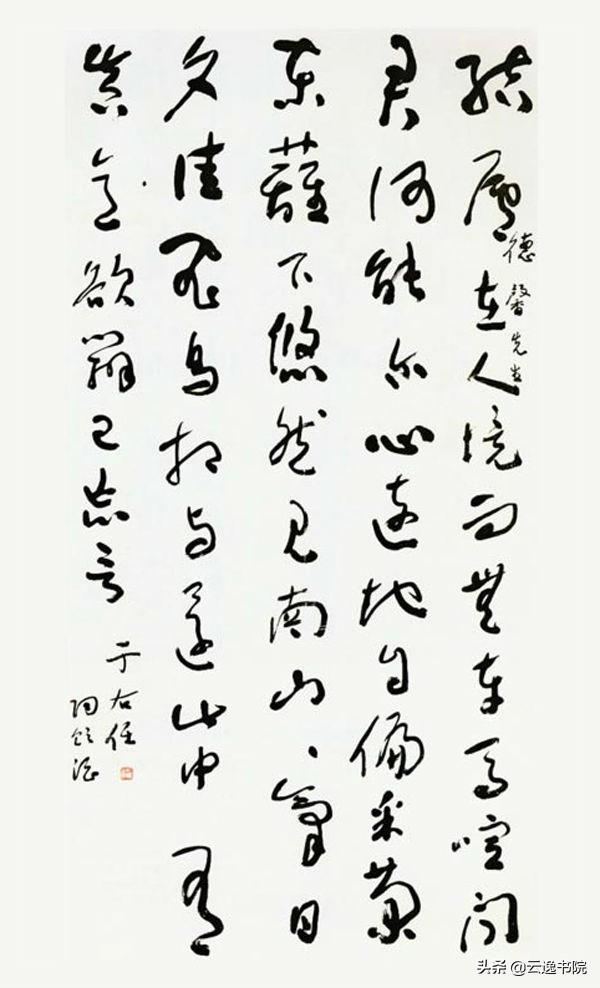 結廬在人境而無車馬喧問
德馨先生
君何能尔心遠地自偏采菊
東籬下悠然見南山、氣日
夕佳飛鳥相與還此中有
真意欲辨已忘言
于右任
陶飲酒
头条 @云逸书院